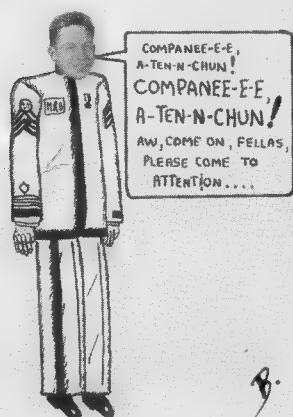 COMPANEE-E-E,
A-TEN-N-CHUN!
COMPANEE-E-E,
A-TEN-N-CHUN!
AW, COME ON, FELLAS,
PLEASE COME TO
ATTENTION....
B.